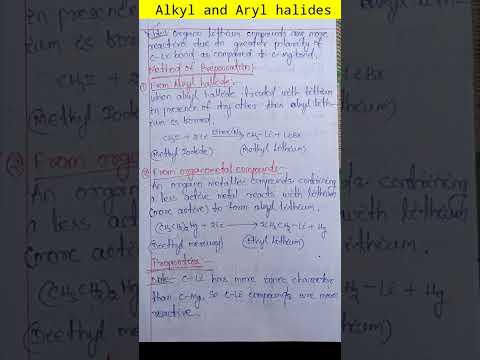 Alkyl and Aryl halides
Note: Organo lithium compounds are more
reactive due to greater polarity of
C-Li bond as compared to C-Mg bond.
Method of Preparation
① From Alkyl halide:
When alkyl halide treated with lithium
in presence of dry ether then alkyl lith-
ium is formed.
CH3I + 2Li → CH3-Li + LiI
(Methyl Iodide) (Methyl lithium)
② From organometal compounds:-
An organo metallic compounds containing
a less active metal reacts with lithium
(more active) to form alkyl lithium.
(CH3CH2)2Hg + 2Li → 2CH3CH2-Li + Hg
(Diethyl mercury) (Ethyl lithium)
Properties
Note:- C-Li has more ionic character
than C-Mg. So C-Li compounds are more
reactive.